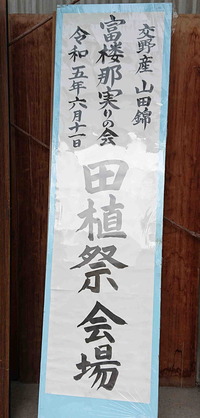 交野産 山田錦
富楼那実りの会
令和五年六月十一日
田植祭会場